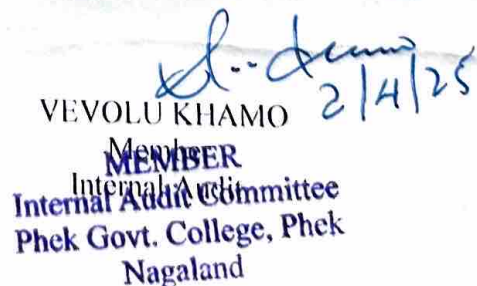 2/4/25
VEVOLU KHAMO
Member
MEMBER
Internal Audit
Internal Audit Committee
Phek Govt. College, Phek
Nagaland